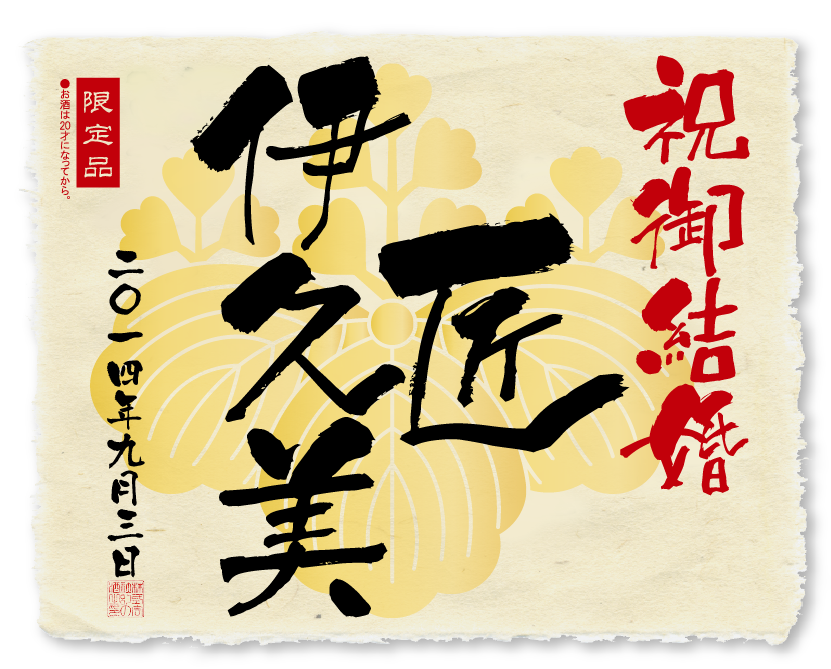 祝御結婚
匠
伊久美
二〇一四年九月三日
限定品
●お酒は20才になってから。